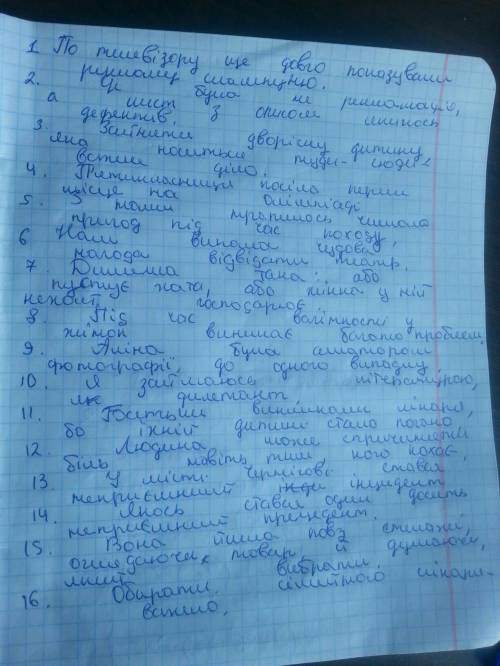 1. По телевізору ще довго показували
рекламу шампуню.
2. Це була не рекламація,
а лист з описом якихось
дефектів.
3. Займети дворісну дитину,
яка носиться туди-сюди
важче діло.
4. П'ятикласниця посіла перше
місце на олімпіаді
5. З нами трапилось чимало
пригод під час походу.
6 Нам випала чудова
нагода відвідати театр.
7. Дилема така: або
пустує хата, або жінка у ній
нехай господарює.
8. Під час вагітності у
жінок виникає багато проблем.
9. Аліна була аматором
фотографії, до одного випадку
10. Я займаюсь літературою,
як дилетант.
11. Батьки викликали лікаря,
бо їхній дитині стало погано
12. Людина може спричиняти
біль навіть тим, кого кохає.
13. У місті Чернігові стався
неприємний інцидент
14. Якось стався один досить
неприємний прецедент.
15. Вона йшла повз стелажі,
оглядаючи товар, й думаючи,
який вибрати.
16. Обирати сімейного лікаря-
важко.